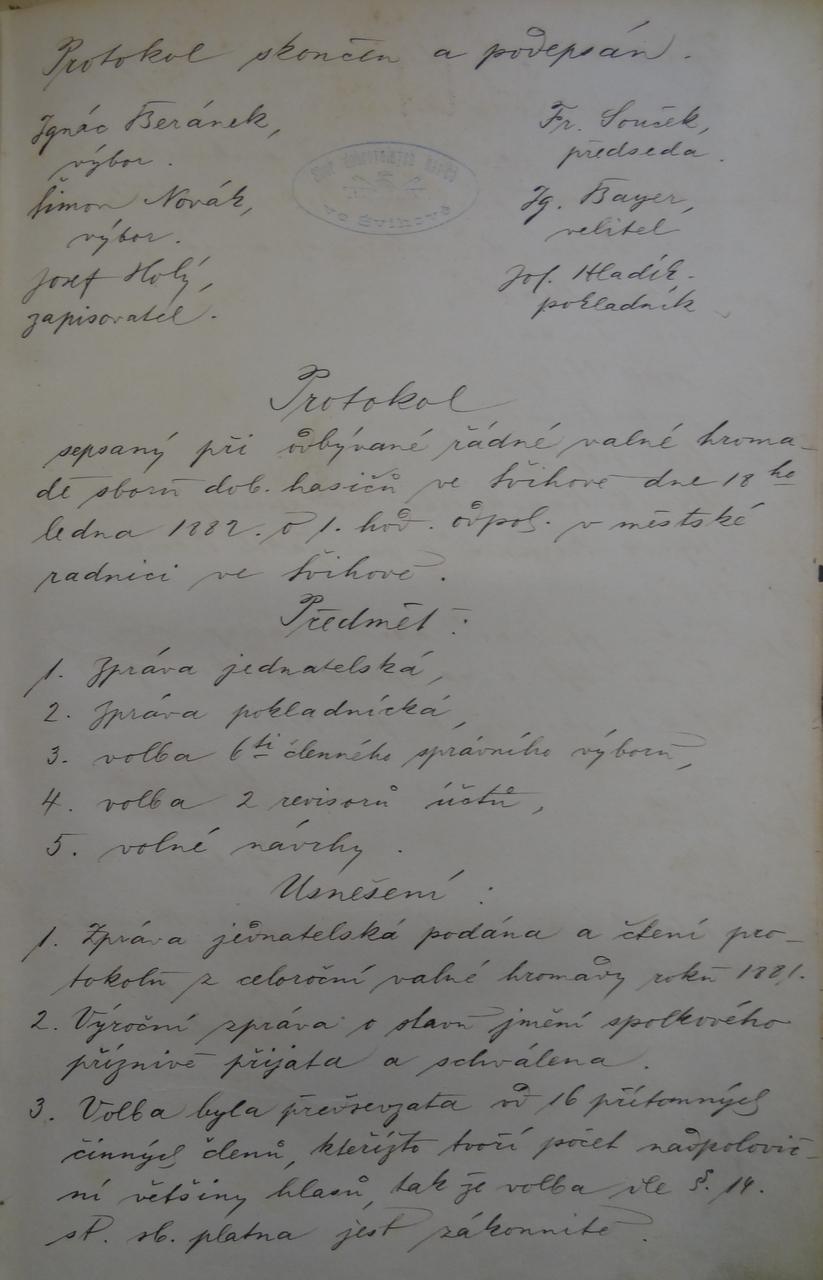 Protokol skončen a podepsán.
Ignác Beránek,
výbor.
Šimon Novák,
výbor.
Josef Holý,
zapisovatel.
Fr. Souček,
předseda.
Ig. Bayer,
velitel
Jos. Hladík.
pokladník
Sbor dobrovolných hasičů
ve Švihově
Protokol
sepsaný při odbývané řádné valné hroma-
dě sboru dob. hasičů ve Švihově dne 18 ho
ledna 1882. o 1. hod. odpol. v městské
radnici ve Švihově.
Předmět:
1. Zpráva jednatelská,
2. Zpráva pokladnická,
3. volba 6ti členného správního výboru,
4. volba 2 revisorů účtů,
5. volné návrhy.
Usnešení:
1. Zpráva jednatelská podána a čtení pro-
tokolu z celoroční valné hromady roku 1881.
2. Výroční zpráva o stavu jmění spolkového
příznivě přijata a schválena.
3. Volba byla předsevzata od 16 přítomných
činných členů, kteřížto tvoří počet nadpolovič-
ní většiny hlasů, tak že volba dle §. 14.
st. sb. platna jest zákonnitě.